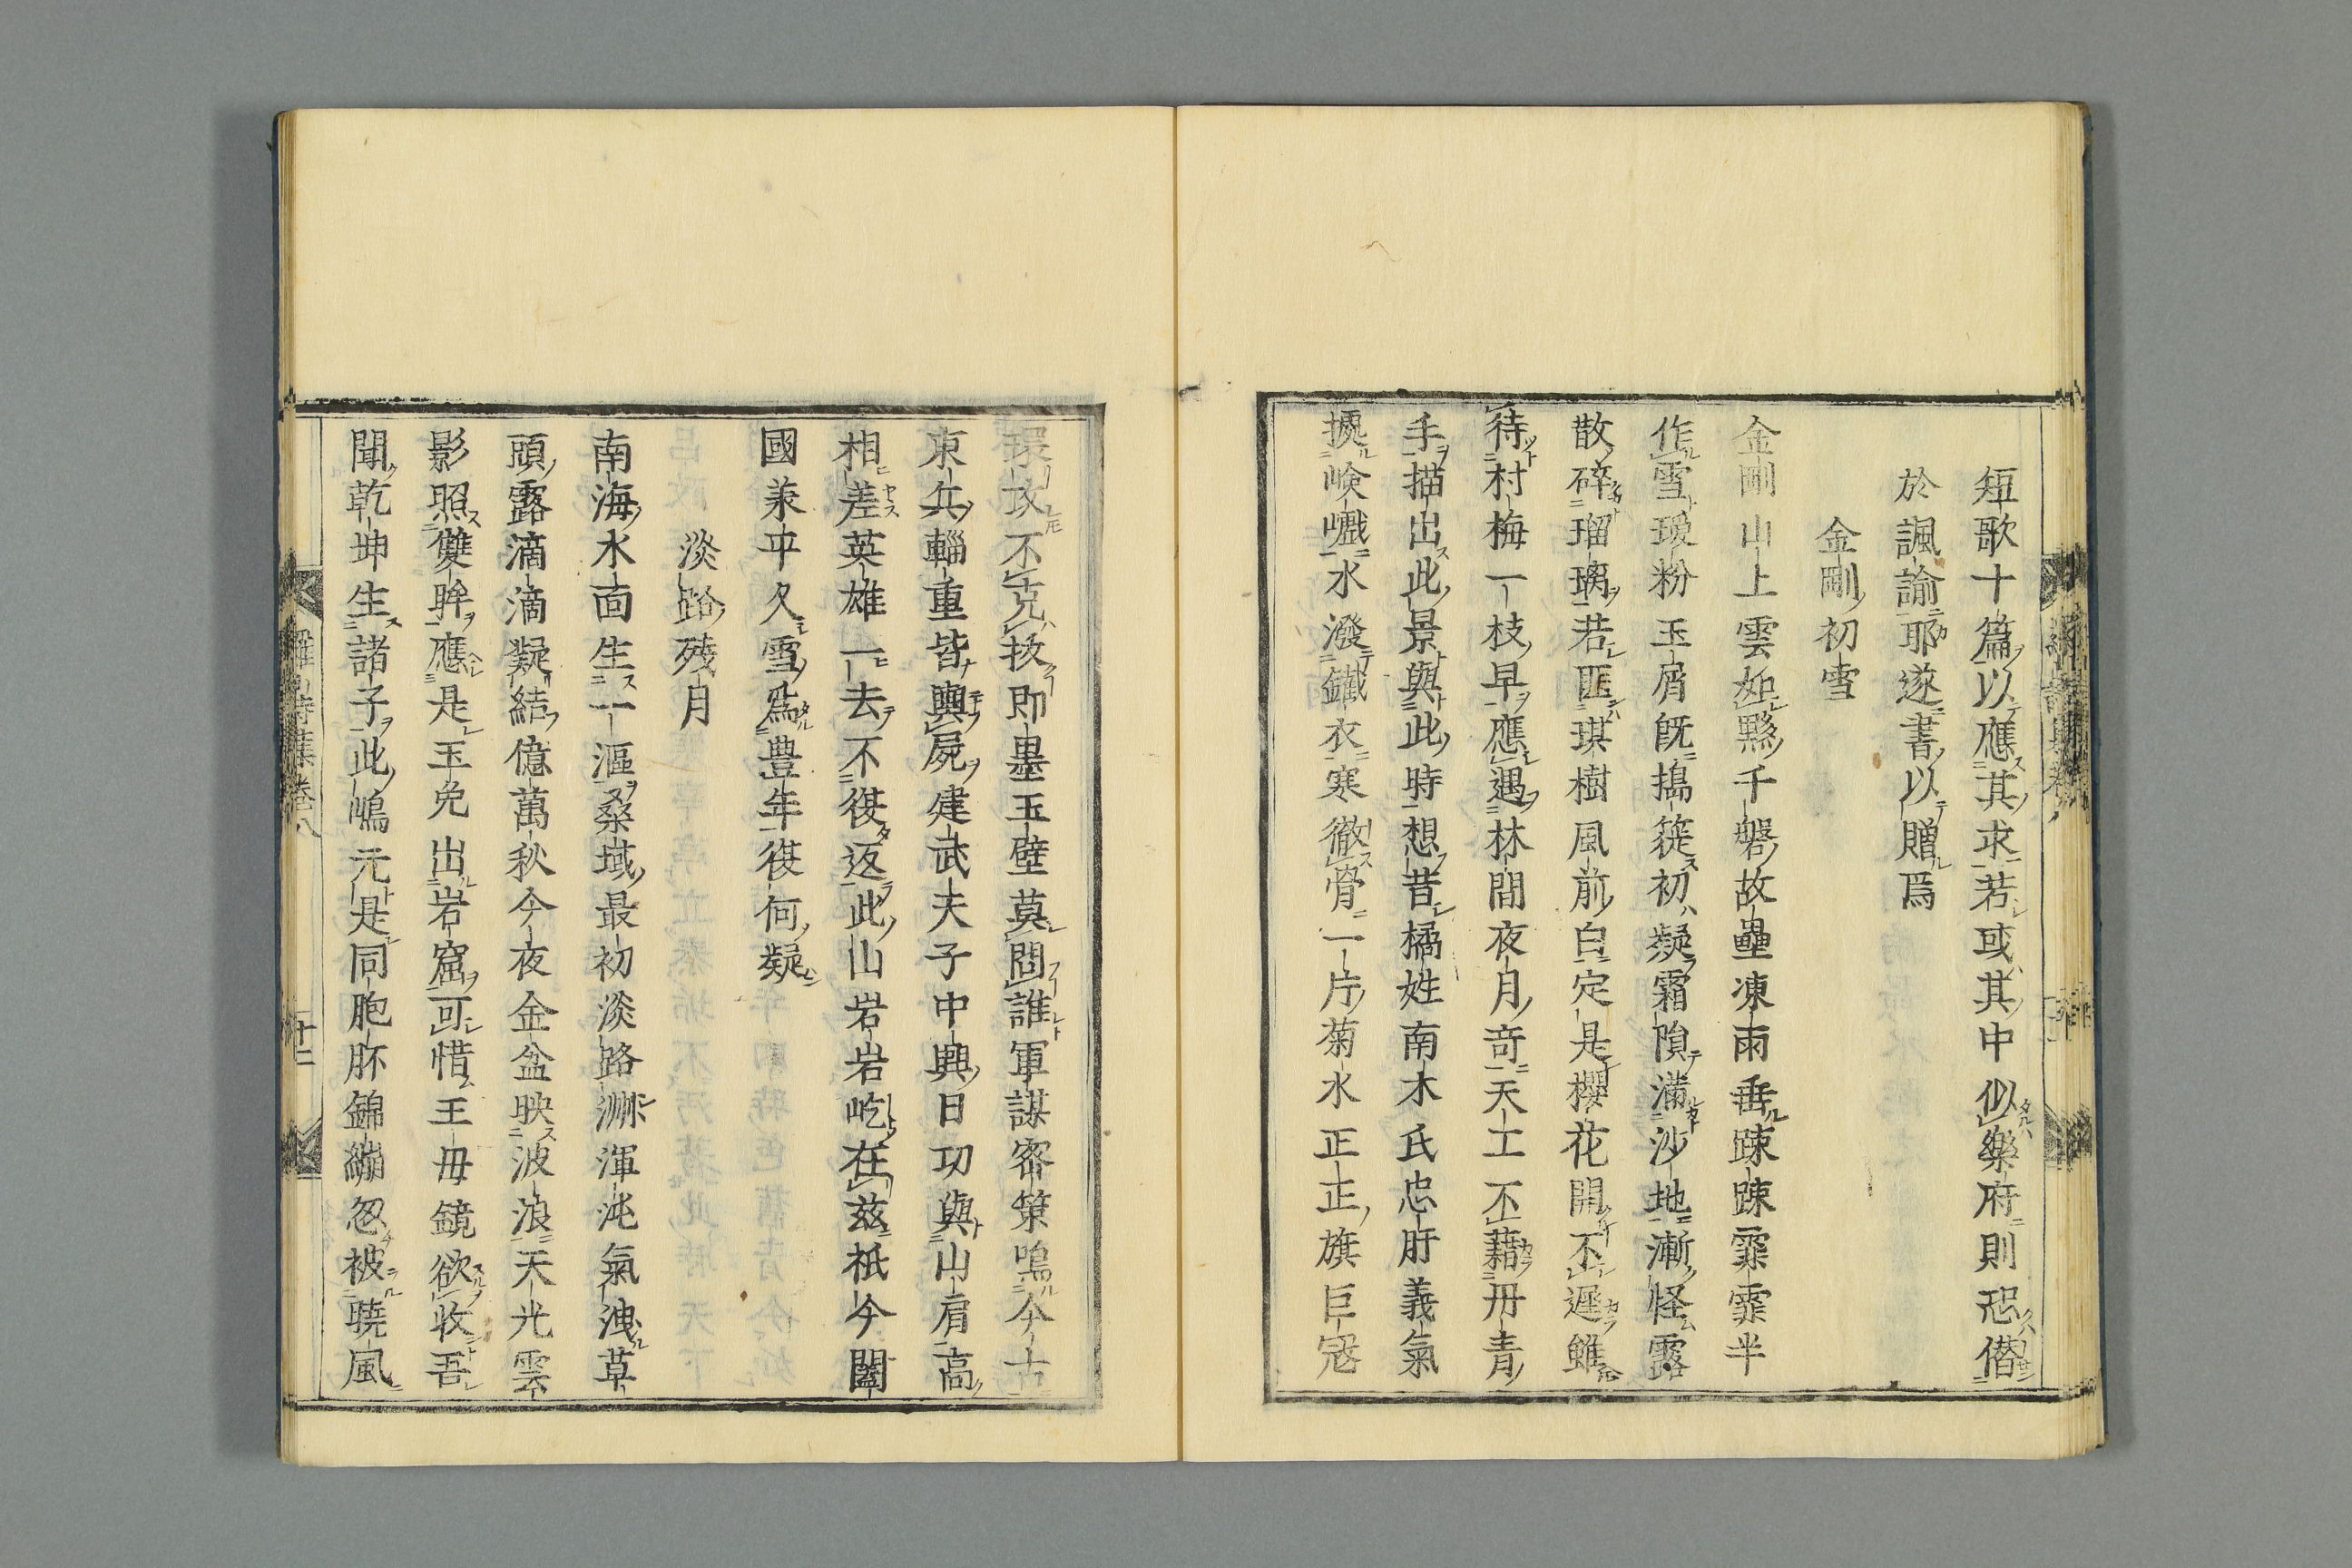 短歌十篇以應其求若或其中似樂府則恐僭
於諷諭耶遂書以贈焉
金剛初雪
金剛山上雲如黳千磐故壘凍雨垂踈踈霏霏半
作雪瑗粉玉屑旣搗簁初疑霜隕滿沙地漸怪露
散碎瑠璃若匪琪樹風前白定是櫻花開不遲雖
待村梅一枝早應遇林間夜月竒天工不藉丹青
手描出此景與此時想昔橘姓南木氏忠肝義氣
據嶮巇水潑鐵衣寒徹骨一片菊水正正旗巨寇
環攻不克拔即墨玉壁莫問誰軍謀密策鳴今古
東兵輜重皆輿屍建武夫子中興日功與山肩高
相差英雄一去不復返此山岩岩屹在茲祇今闔
國兼平久雪爲豊年復何疑
淡路殘月
南海水面生一漚桑域最初淡路洲渾沌氣洩草
頭露滴滴凝結億萬秋今夜金盆映波浪天光雲
影照雙眸應是玉兔出岩窟可惜王母鏡欲收吾
聞乾坤生諸子此嶋元是同胞胚錦繃忽被驍風
羅山詩集卷八
十二